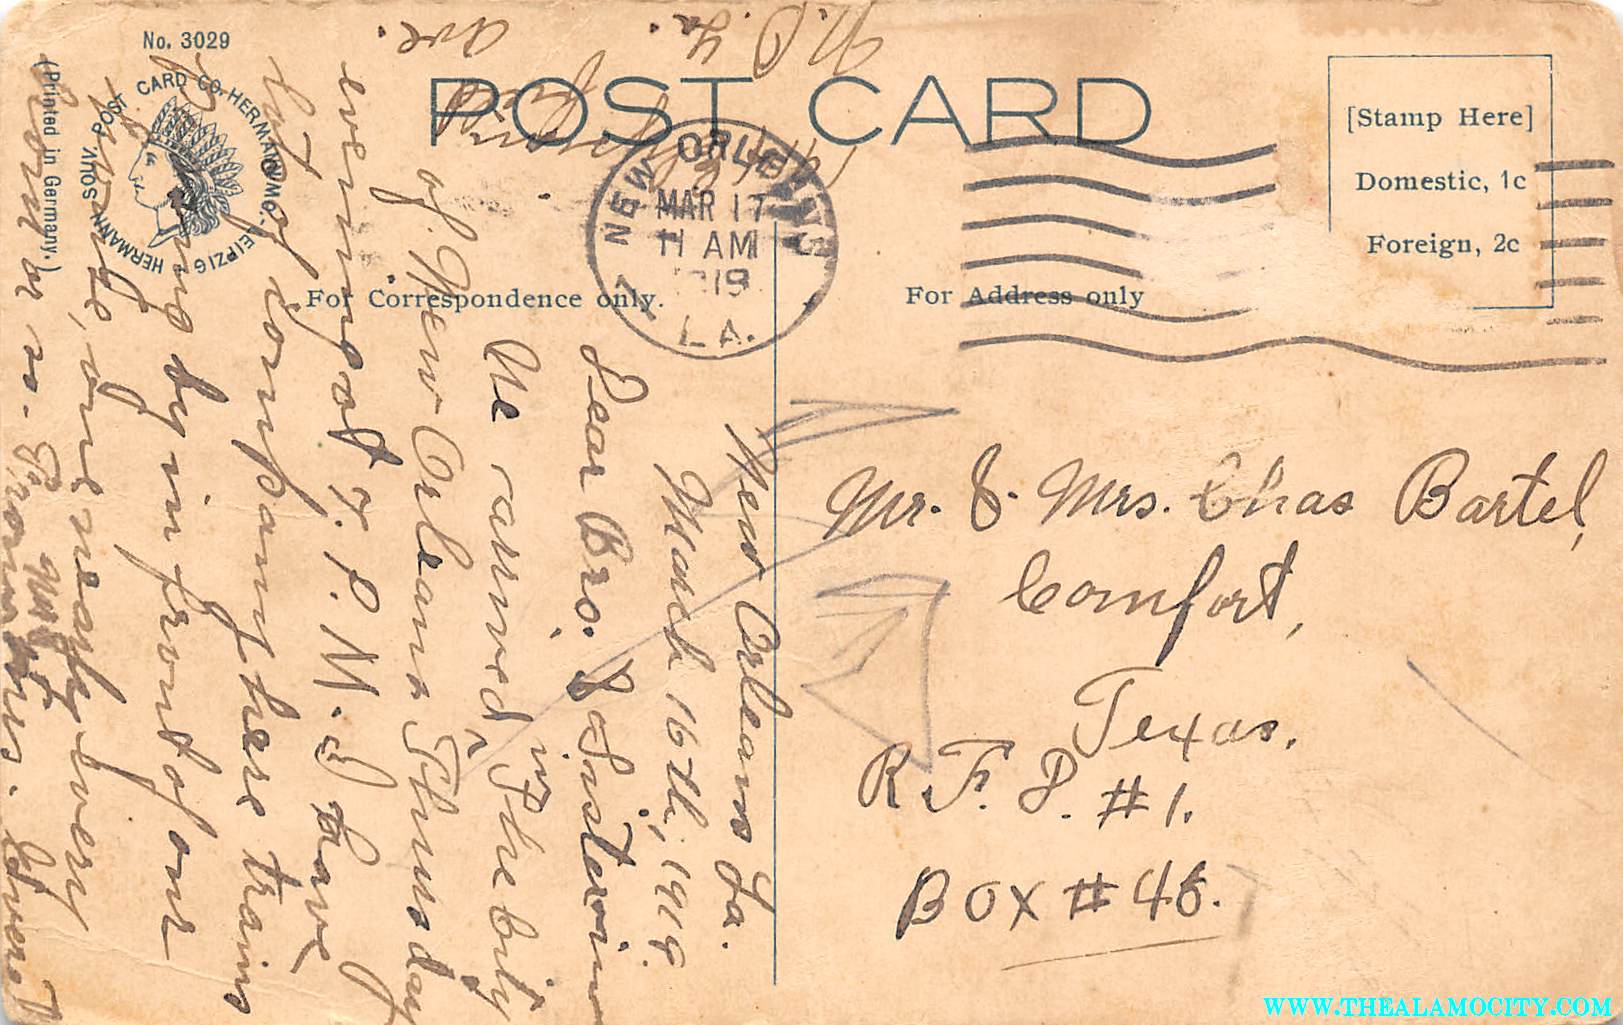 No. 3029
(Printed in Germany.)
SOUV. POST CARD CO. HERMANN
LEIPZIG
POST CARD
For Correspondence only.
For Address only
[Stamp Here]
Domestic, 1c
Foreign, 2c
NEW ORLEANS
MAR 17
11 AM
1919
LA.
New Orleans La.
March 16th, 1919.
Dear Bro. & Sisterinn
We arrived in The City
of New Orleans Thursday
evening at 7. P. M. I have
lot of company here trains
going by in front of our
tents, one nearly every
hour or so.
N. O. La.
ave.
Mr. & Mrs. Chas Bartel,
Comfort,
Texas.
R. F. D. #1.
Box #46.
WWW.THEALAMOCITY.COM